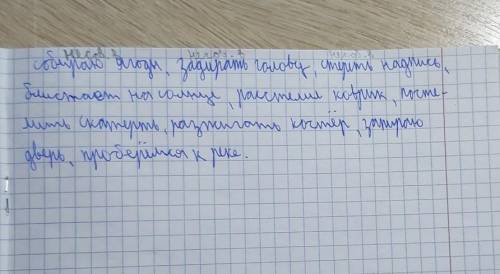 собираю ягоды, задирать голову, стереть надпись,
блистает на солнце, расстелил коврик, посте-
лить скатерть, разжигать костёр, запираю
дверь, проберёмся к реке.